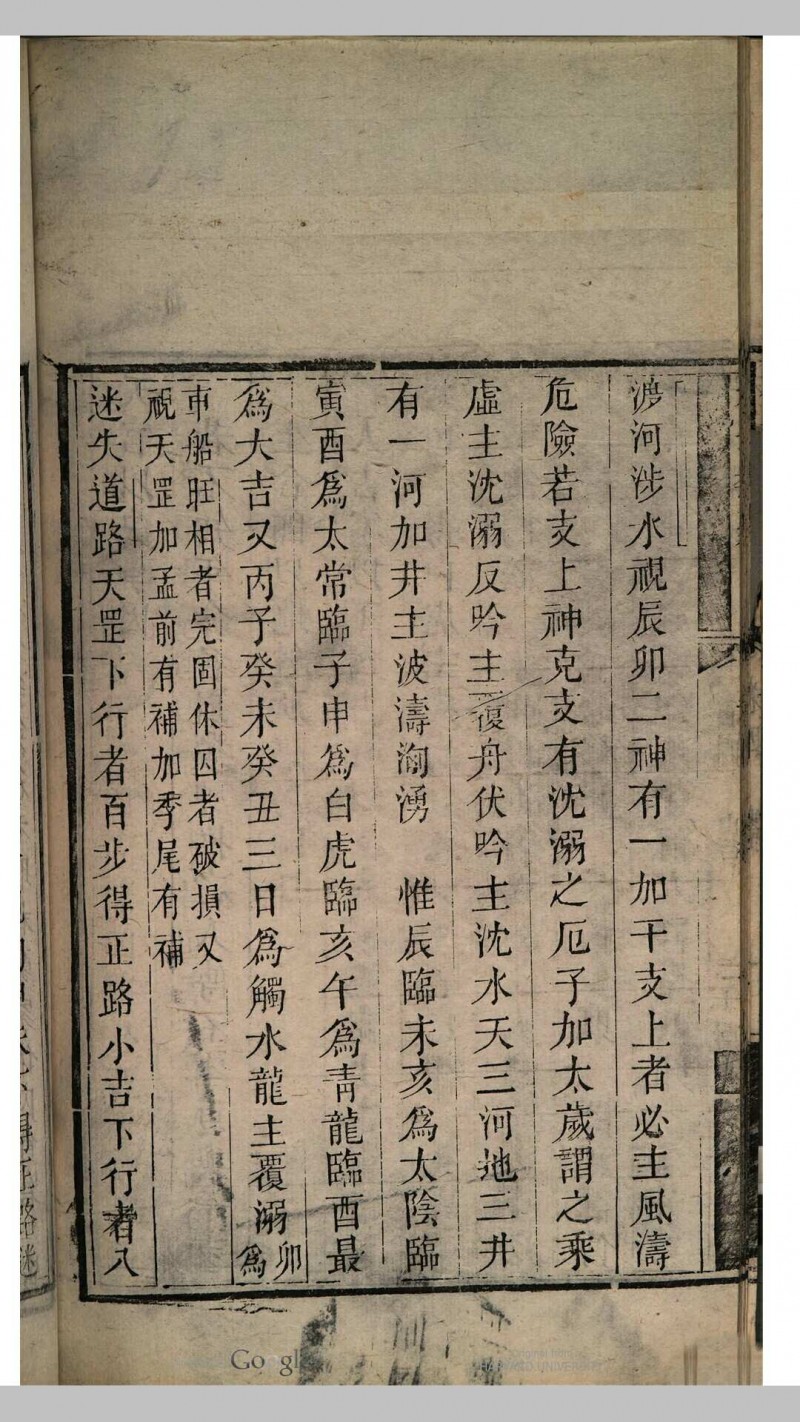 渡河涉水視辰卯二神有一加干支上者必主風濤
危險若支上神克支有沈溺之厄子加太歲謂之乘
虛主沈溺反吟主覆舟伏吟主沈水天三河地三井
有一河加井主波濤洶湧　惟辰臨未亥為太陰臨
寅酉為太常臨子申為白虎臨亥午為青龍臨酉最
為大吉又丙子癸未癸丑三日為觸水龍主覆溺卯為
車船旺相者完固休囚者破損又
視天罡加孟前有補加季尾有補
迷失道路天罡下行者百步得正路小吉下行者八
Google